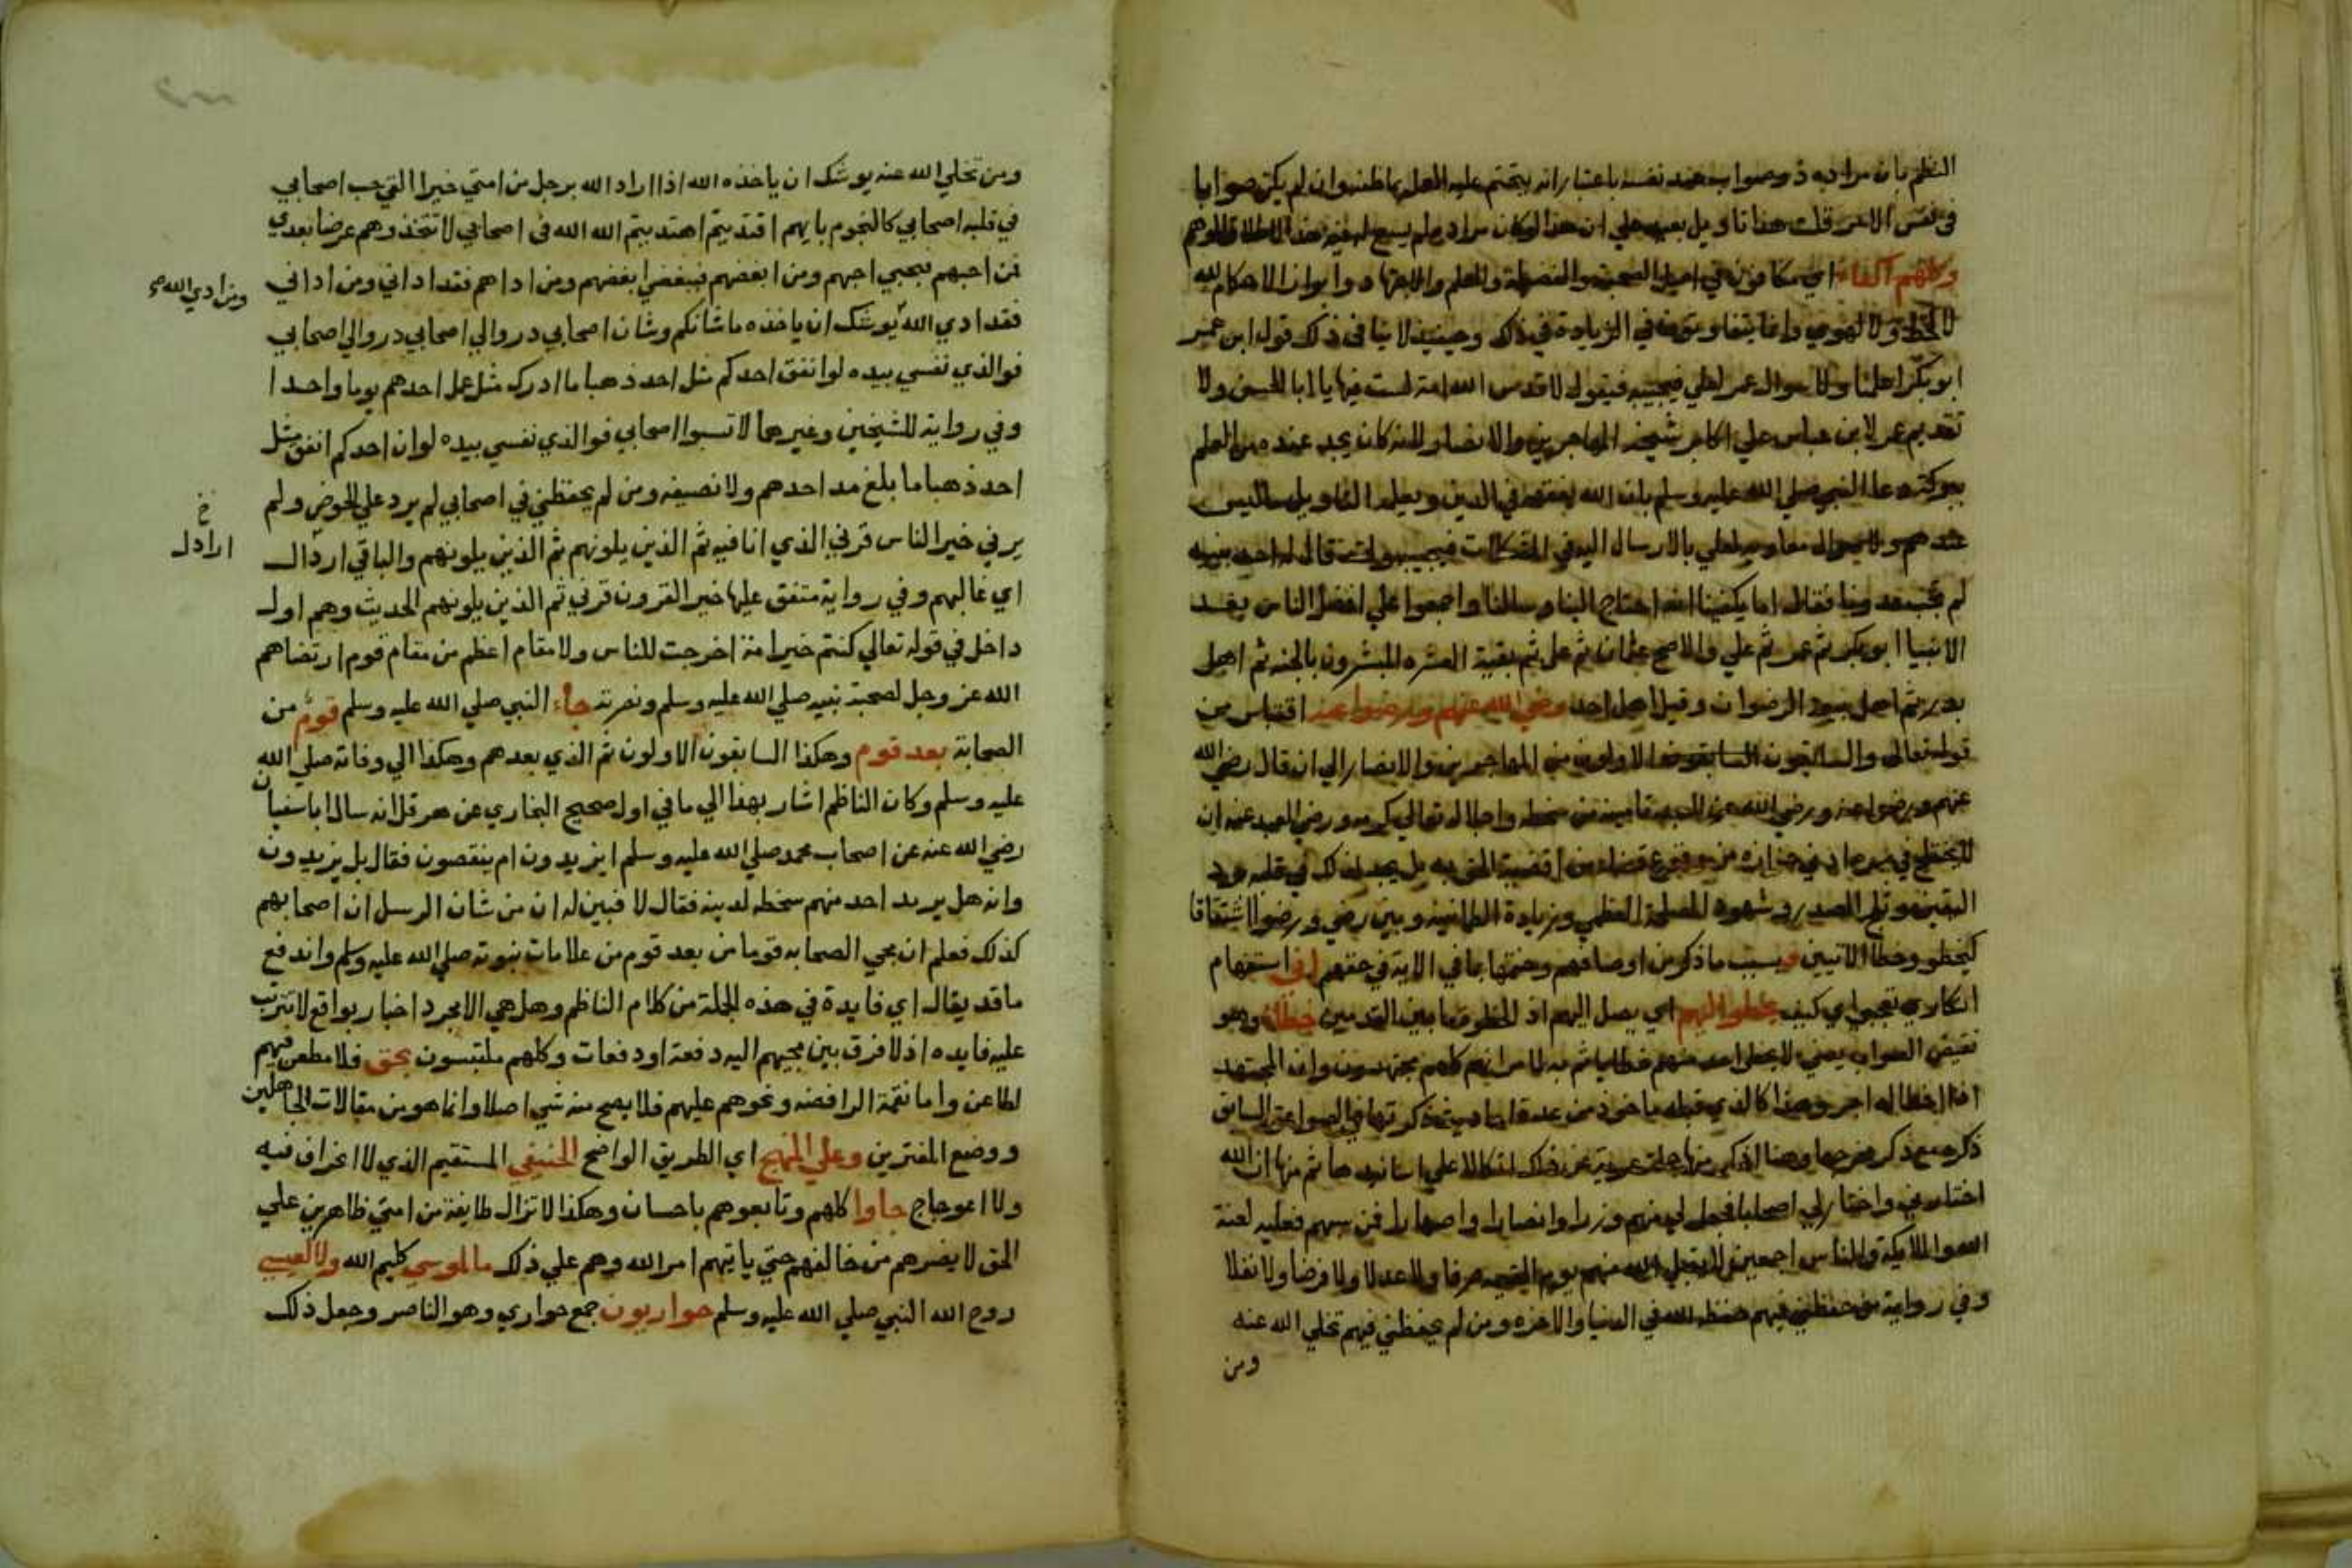 النظم بان مراده ذو صواب عند نفسه باعتبار انه يتحتم عليه العمل بما ظنه وان لم يكن صوابا
في نفس الامر قلت هذا تاويل بعيد علي ان هذا لو كان مراده لم يسع له فيه هذا الاطلاق الموهم
وكلهم اكفاء اي متكافؤن في اصل الصحبة والفضيلة والعلم والاجتهاد وابراز الاحكام لله
لا لحظ ولا لهوي وانما يتفاوتون في الزيادة في ذلك وحينيذ لا ينافي ذلك قول ابن عمر
ابو بكر اعلمنا ولا سوال عمر لعلي فيجيبه فيقول لا قدس الله امة لست فيها يا ابا الحسن ولا
تقديم عمر لابن عباس علي اكابر شيخة المهاجرين والانصار لانه كان يجد عنده من العلم
ببركة دعا النبي صلي الله عليه وسلم بان الله يفقهه في الدين ويعلمه التاويل ما ليس
عندهم ولا سوال معاوية لعلي بالارسال اليه في المشكلات فيجيبه ولما قال له احد بنيه
لم تجب عدونا فقال اما يكفينا انه احتاج الينا وسالنا واجمعوا علي افضل الناس بعد
الانبيا ابو بكر ثم عمر ثم علي والاصح عثمان ثم علي ثم بقية العشره المبشرون بالجنه ثم اهل
بدر ثم اهل بيعة الرضوان وقيل اهل احد رضي الله عنهم ورضوا عنه اقتباس من
قوله تعالي والسابقون السابقون الاولون من المهاجرين والانصار الي ان قال رضي الله
عنهم ورضوا عنه ورضي الله عن العبد تامينه من سخطه واحلاله تعالي كرمه ورضي العبد عنه ان
لا يختلج في سره ادني حزازة من وقوع قضاء من اقضية الحق به بل يجد لذلك في قلبه برد
اليقين وثلج الصدر وشهود المصلحة العظمي وزيادة الطمانينه وبين رضي ورضوا اشتقاقا
كيخطو وخطا الاتيين وبسبب ما ذكر من اوصافهم وختمها بما في الاية في حقهم اني استفهام
انكاري تعجبي اي كيف يخطوا اليهم اي يصل اليهم اذ الخطوة ما بين القدمين خطاء وهو
نقيض الصواب يعني لا يخطي احد منهم خطا ياثم به لما مر انهم كلهم مجتهدون وان المجتهد
اذا اخطا له اجر وهذا كالذي قبله ماخوذ من عدة احاديث ذكرتها في الصواعق السابق
ذكره مع ذكر مخرجها وهنا اذكر منها جملة عرية عن ذلك اتكالا علي اسانيدها ثم منها ان الله
اختارني واختار لي اصحابا فجعل لي منهم وزرا وانصارا واصهارا فمن سبهم فعليه لعنة
الله والملايكة والناس اجمعين لا يقبل الله منهم يوم القيمه صرفا ولا عدلا ولا فرضا ولا نفلا
وفي رواية من حفظني فيهم حفظه الله في الدنيا والاخره ومن لم يحفظني فيهم تخلي الله عنه
ومن
ومن تخلي الله عنه يوشك ان ياخذه الله اذا اراد الله برجل من امتي خيرا القي حب اصحابي
في قلبه اصحابي كالنجوم بايهم اقتديتم اهتديتم الله الله في اصحابي لا تتخذوهم عرضا بعدي
فمن احبهم فبحبي احبهم ومن ابغضهم فببغضي ابغضهم ومن اداهم فقد اداني ومن اداني
ومن ادي الله
فقد ادي الله يوشك ان ياخذه ما شانكم وشان اصحابي دروالي اصحابي دروالي اصحابي
فوالذي نفسي بيده لو انفق احدكم مثل احد ذهبا ما ادرك مثل عمل احدهم يوما واحدا
وفي رواية للشيخين وغيرهما لا تسبوا اصحابي فوالذي نفسي بيده لو ان احدكم انفق مثل
احد ذهبا ما بلغ مد احدهم ولا نصيفه ومن لم يحفظني في اصحابي لم يرد علي الحوض ولم
يرني خير الناس قرني الذي انا فيه ثم الذين يلونهم ثم الذين يلونهم والباقي اردال
خ
ارادل
اي غالبهم وفي رواية متفق عليها خير القرون قرني ثم الذين يلونهم الحديث وهم اول
داخل في قوله تعالي كنتم خير امة اخرجت للناس ولا مقام اعظم من مقام قوم ارتضاهم
الله عز وجل لصحبة نبيه صلي الله عليه وسلم ونصرته جاء النبي صلي الله عليه وسلم قوم من
الصحابة بعد قوم وهكذا السابقون الاولون ثم الذي بعدهم وهكذا الي وفاته صلي الله
عليه وسلم وكان الناظم اشار بهذا الي ما في اول صحيح البخاري عن هرقل انه سال ابا سفيان
رضي الله عنه عن اصحاب محمد صلي الله عليه وسلم ايزيدون ام ينقصون فقال بل يزيدون
وانه هل يرتد احد منهم سخطه لدينه فقال لا فبين له ان من شان الرسل ان اصحابهم
كذلك فعلم ان مجي الصحابه قوما من بعد قوم من علامات نبوته صلي الله عليه وسلم واندفع
ما قد يقال اي فايدة في هذه الجملة من كلام الناظم وهل هي الا مجرد اخبار بواقع لا تترتب
عليه فايده اذ لا فرق بين مجيهم اليه دفعة او دفعات وكلهم ملتبسون بحق فلا مطعن فيهم
لطاعن واما نقمة الرافضه ونحوهم عليهم فلا يصح منه شي اصلا وانما هو من مقالات الجاهلين
ووضع المفترين وعلي المنهج اي الطريق الواضح الحنيفي المستقيم الذي لا انحراف فيه
ولا اعوجاج جاوا كلهم وتابعوهم باحسان وهكذا لا تزال طايفة من امتي ظاهرين علي
الحق لا يضرهم من خالفهم حتي ياتيهم امر الله وهم علي ذلك ما لموسي كليم الله ولا لعيسي
روح الله النبي صلي الله عليه وسلم حواريون جمع حواري وهو الناصر وجعل ذلك